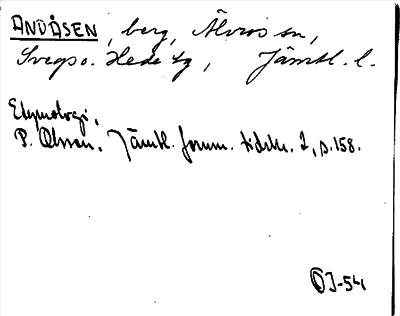 ANDÅSEN, berg, Älvros sn,
Svegs o. Hede tg, Jämtl. l.
Etymologi,
P. Olsson. Jämtl. fornm. tidskr. 2, s. 158.
OJ-54